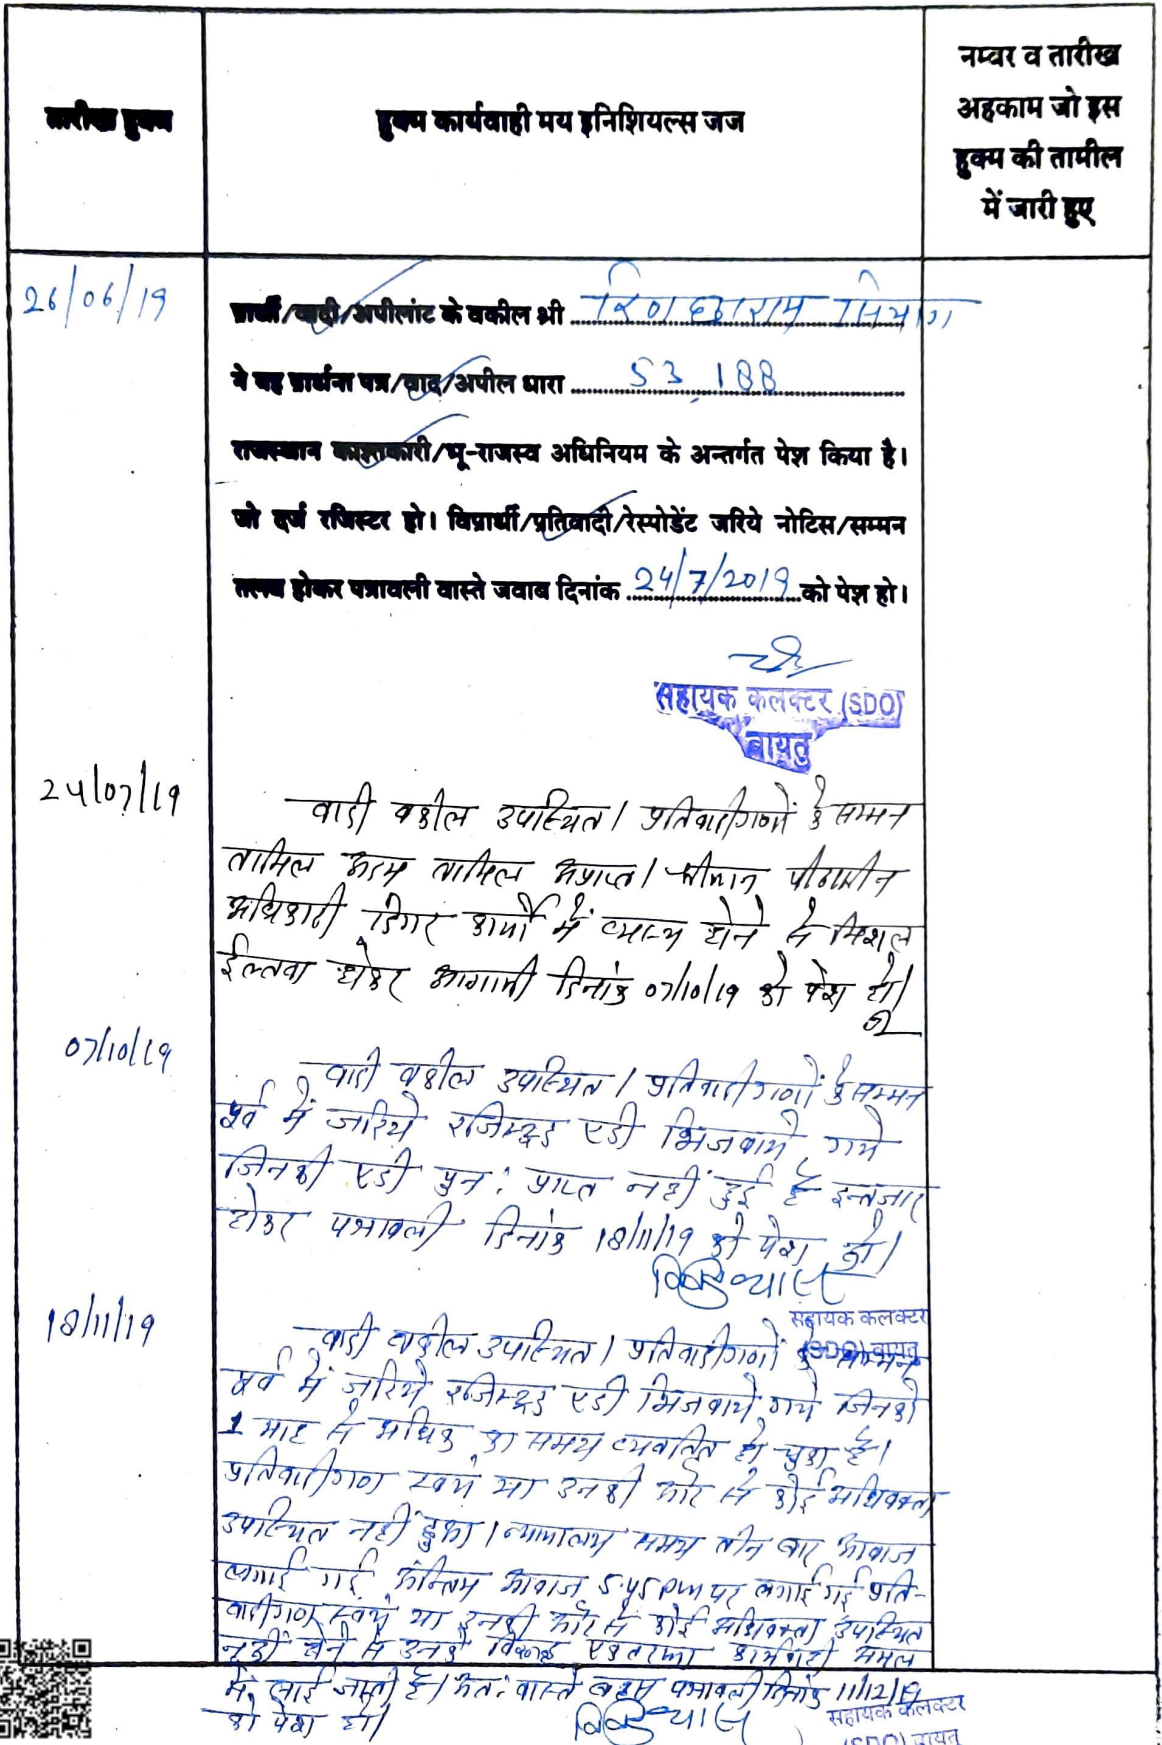 तारीख हुक्म
हुक्म कार्यवाही मय इनिशियल्स जज
नम्बर व तारीख
अहकाम जो इस
हुक्म की तामील
में जारी हुए
26/06/19
प्रार्थी/वादी/अपीलांट के वकील श्री रिणछाराम सियाग
ने यह प्रार्थना पत्र/वाद/अपील धारा 53, 188
राजस्थान काश्तकारी/भू-राजस्व अधिनियम के अन्तर्गत पेश किया है।
जो दर्ज रजिस्टर हो। विप्रार्थी/प्रतिवादी/रेस्पोडेंट जरिये नोटिस/सम्मन
तलब होकर पत्रावली वास्ते जवाब दिनांक 24/7/2019 को पेश हो।
सहायक कलक्टर (SDO)
बायतु
24/07/19
वादी वकील उपस्थित। प्रतिवादीगणों के सम्मन
तामिल अदम तामिल अप्राप्त। श्रीमान पीठासीन
अधिकारी डिगर कार्यो में व्यस्थ होने से मिशल
ईल्तवा होकर आगामी दिनांक 07/10/19 को पेश हो।
07/10/19
वादी वकील उपस्थित। प्रतिवादीगणों के सम्मन
पूर्व में जरिये रजिस्टर्ड एडी भिजवाये गये
जिनकी एडी पुन: प्राप्त नहीं हुई है इन्तजार
होकर पत्रावली दिनांक 18/11/19 को पेश हो।
सहायक कलक्टर
(SDO) बायतु
18/11/19
वादी वकील उपस्थित। प्रतिवादीगणों के सम्मन
पूर्व में जरिये रजिस्टर्ड एडी भिजवाये गये जिनको
1 माह से अधिक का समय व्यवतित हो चुका है।
प्रतिवादीगण स्वयं या उनकी ओर से कोई अधिवक्ता
उपस्थित नहीं हुआ। न्यायालय समय तीन बार आवाज
लगाई गई अन्तिम आवाज 5:45 pm पर लगाई गई प्रति-
वादीगण स्वयं या उनकी ओर से कोई अधिवक्ता उपस्थित
नहीं होने से उनके विरूद्ध एकतरफा कार्यवाही अमल
में लाई जाती है। अत: वास्ते बहस पत्रावली दिनांक 11/12/19
को पेश हो।
सहायक कलक्टर
(SDO) बायतु